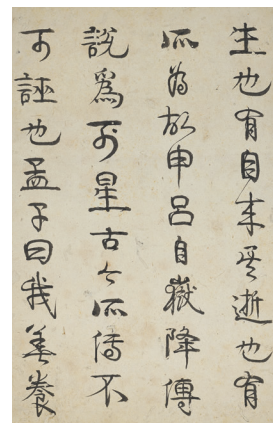 生也有自来其逝也有
所為故申呂自嶽降傅
說爲列星古今所傳不
可誣也孟子曰我善養